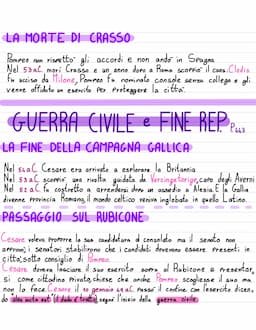 LA MORTE DI CRASSO
Pompeo non rispettò gli accordi e non andò in Spagna
Nel 53 a.C. morì Crasso e un anno dopo a Roma scoppiò il caos. Clodio
fu ucciso da Milone, Pompeo fu nominato console senza collega e gli
venne affidato un esercito per proteggere la città.
GUERRA CIVILE e FINE REP.
LA FINE DELLA CAMPAGNA GALLICA
Nel Cesare era arrivato a esplorare la Britannia
Nel 53 a.C. scoppiò una rivolta guidata da Vercingetorige, capo degli Averni
Nel 52 a.C. fu costretto a arrendersi dopo un assedio a Alesia. E la Gallia
divenne provincia Romana, il mondo celtico veniva inglobato in quello Latino.
PASSAGGIO SUL RUBICONE
Cesare voleva proporre la sua candidatura al consolato ma il senato non
approvò, i senatori stabilirono che i candidati dovevano essere presenti in
città, sotto consiglio di Pompeo.
Cesare doveva lasciare il suo esercito sopra al Rubicone e presentar_
si come cittadino privato, chiese che anche Pompeo sciogliesse il suo ma
non lo fece. Cesare il 10 gennaio 49 a.C. passò il confine con l'esercito dicen_
do "alea iacta est" (il dado è tratto), segna l'inizio della guerra civile.